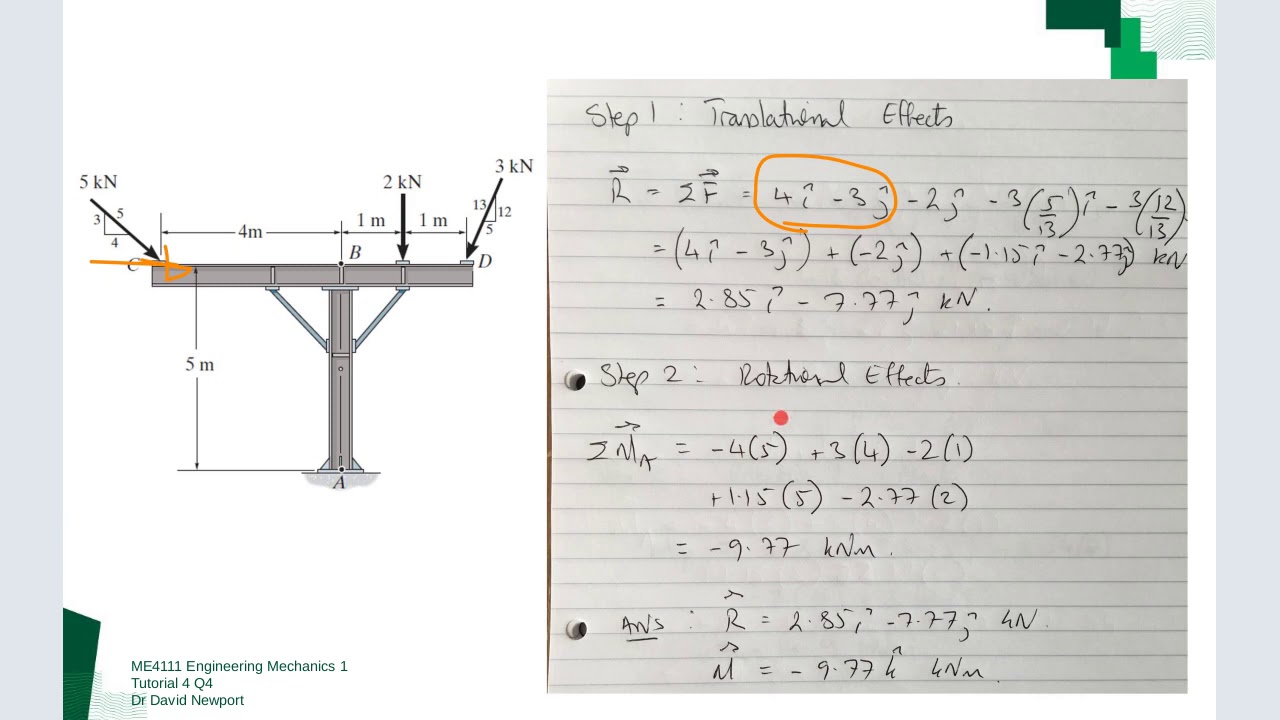 5 kN
3
5
4
4m
B
1 m
2 kN
1 m
3 kN
13
12
5
C
D
5 m
A
Step 1 : Translational Effects
R⃗ = ΣF⃗ = 4î - 3ĵ - 2ĵ - 3(5/13)î - 3(12/13)
= (4î - 3ĵ) + (-2ĵ) + (-1.15î - 2.77ĵ) kN
= 2.85î - 7.77ĵ kN.
Step 2 : Rotational Effects.
ΣM⃗A = -4(5) + 3(4) - 2(1)
+1.15(5) - 2.77(2)
= -9.77 kNm.
ANS : R⃗ = 2.85î - 7.77ĵ kN.
M⃗ = -9.77 k̂ kNm.
ME4111 Engineering Mechanics 1
Tutorial 4 Q4
Dr David Newport